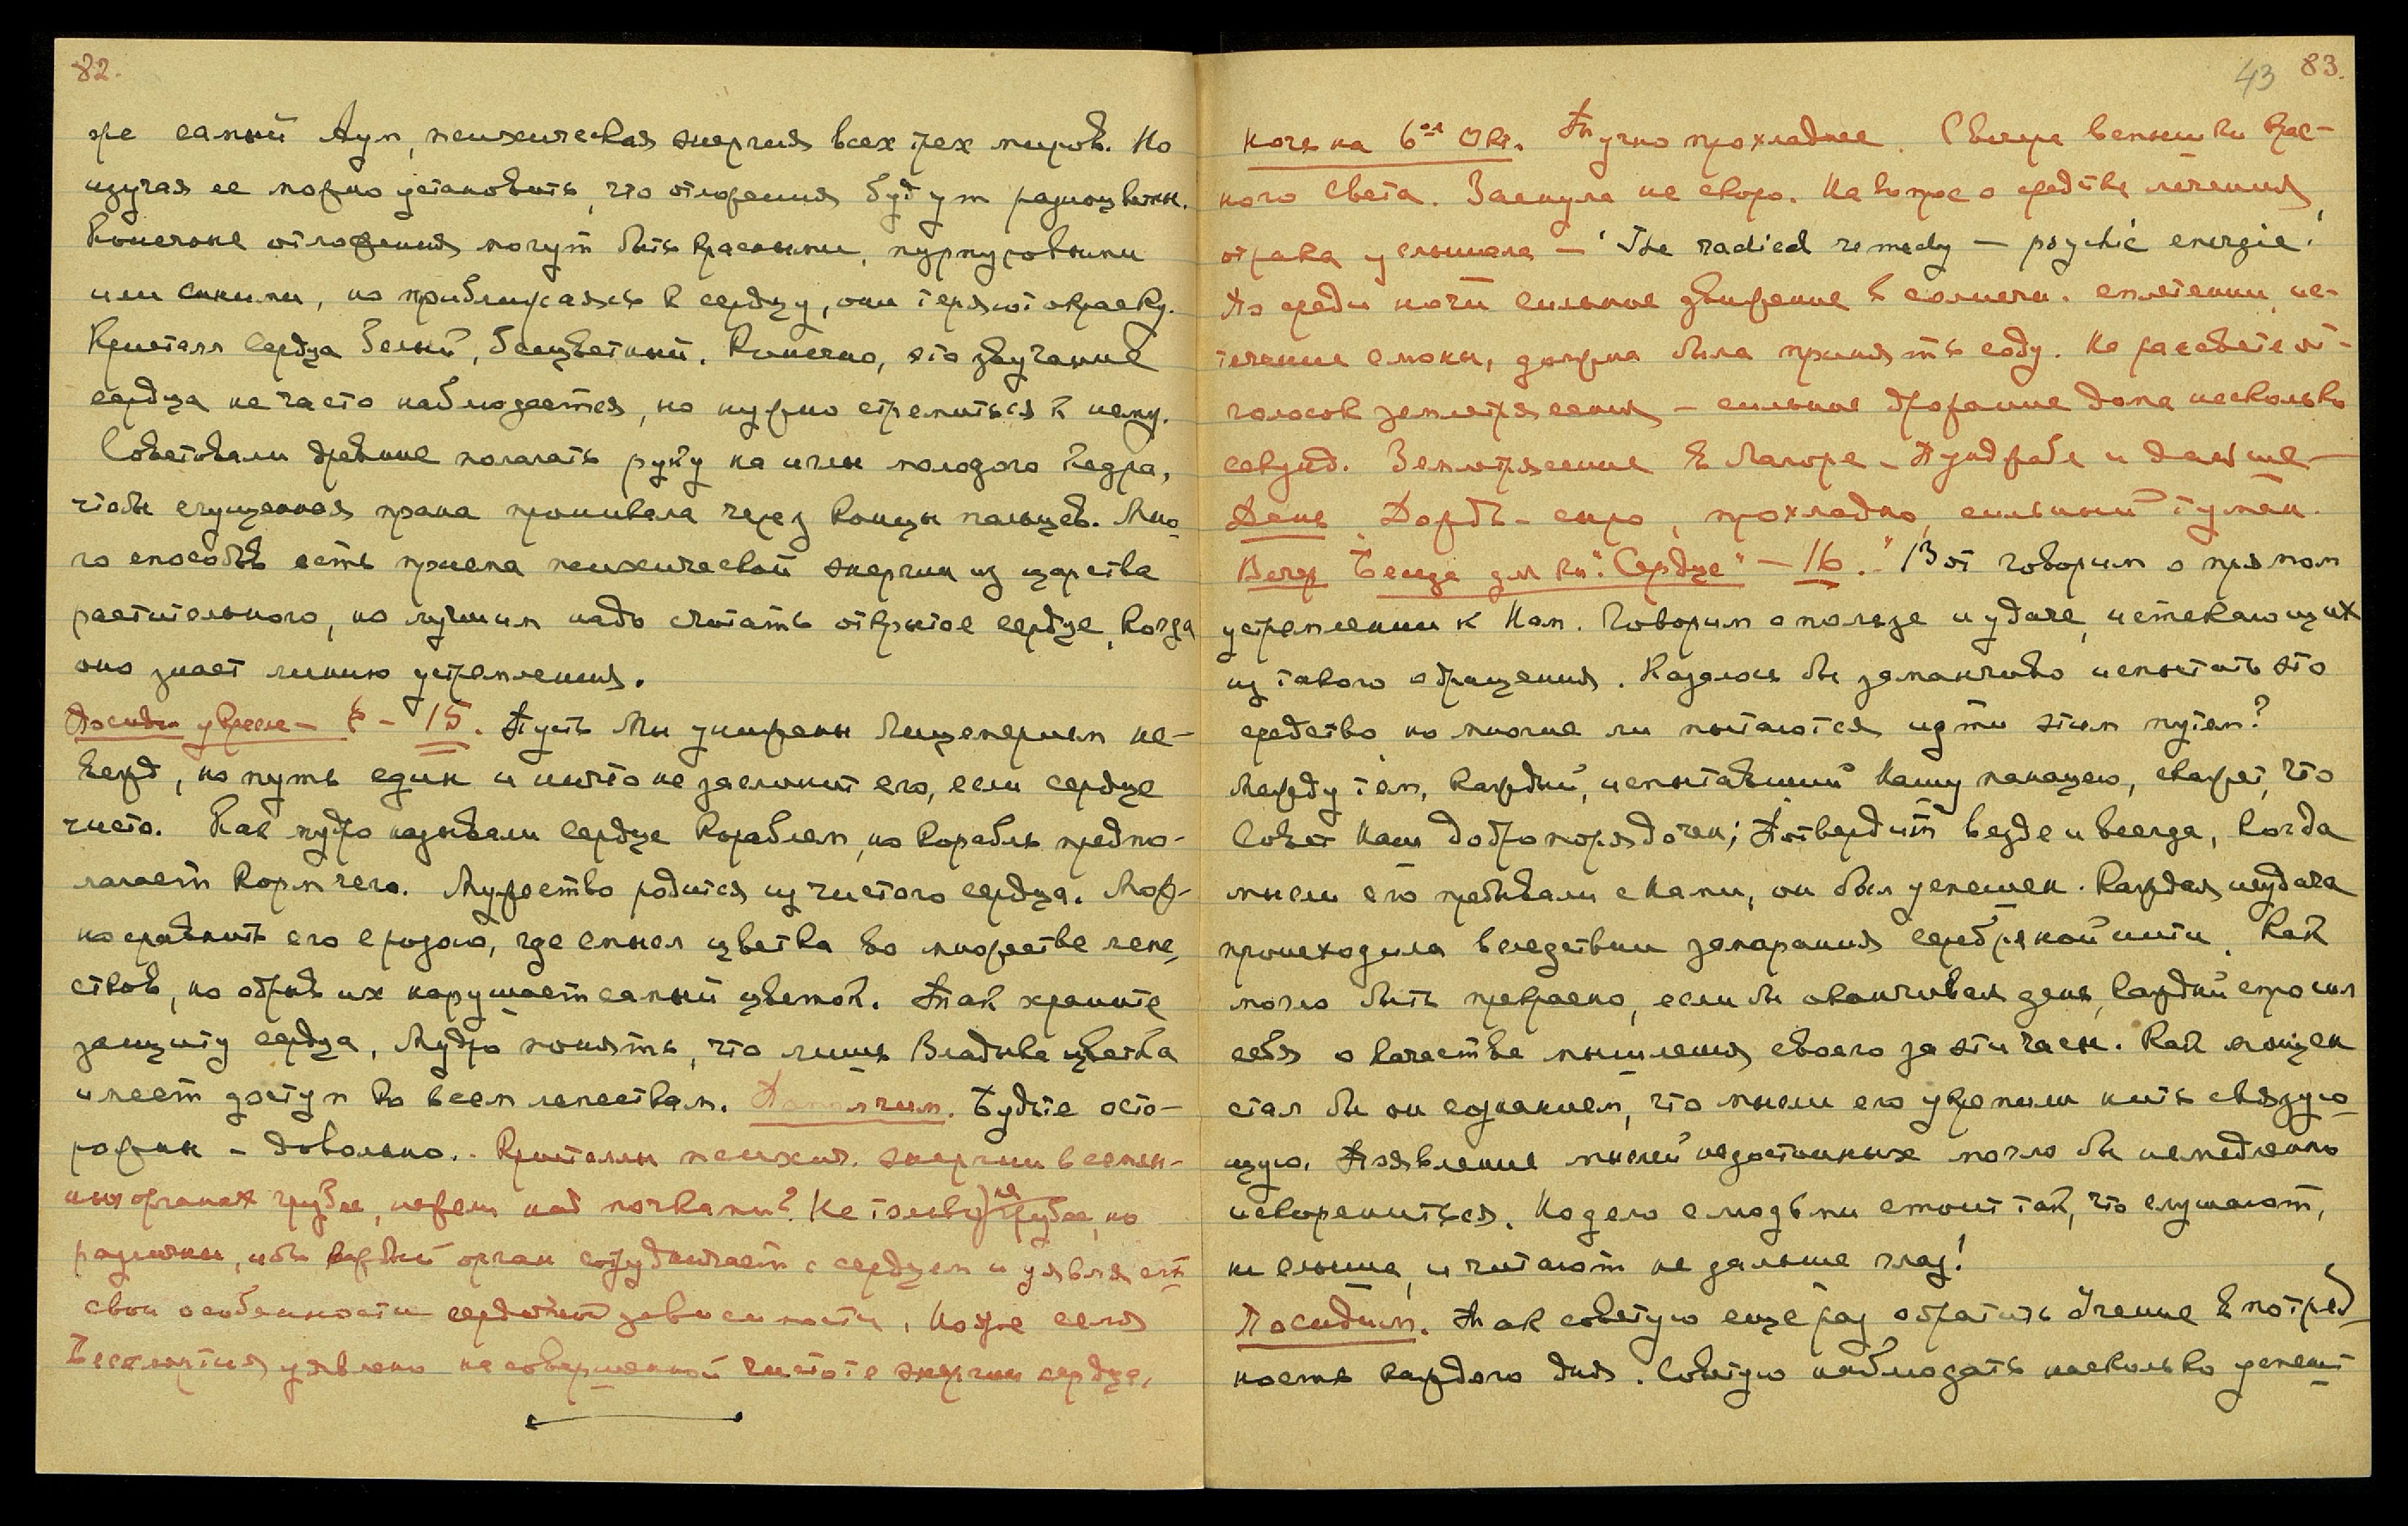 82.
же самый Аум, психическая энергия всех трех миров. Но
изучая ее можно установить, что отложения будут разноцветны.
Конечные отложения могут быть красными, пурпуровыми
или синими, но приближаясь к сердцу, они теряют окраску.
Кристалл Сердца белый, бесцветный. Конечно, это звучание
сердца не часто наблюдается, но нужно стремиться к нему.
Советовали древние полагать руку на иглы молодого Кедра,
чтобы сгущенная прана проникала через концы пальцев. Мно
го способов есть приема психической энергии из царства
растительного, но лучшим надо считать открытое сердце, когда
оно знает линию устремления.
15. Путь Мы унижены Лицемерием не-
вежд, но путь един и ничто не заслонит его, если сердце
чисто. Как мудро называли Сердце Кораблем, но Корабль предпо-
лагает Кормчего. Мужество родится из чистого сердца. Мож-
но сравнить его с розою, где смысл цветка во множестве лепе
стков, но обрыв их нарушает самый цветок. Так храните
защиту сердца, Мудро понять, что лишь Владыка цветка
имеет доступ ко всем лепесткам. Помолчим. Будьте осто-
рожны - довольно. - Кристаллы психич. энергии в семен-
ных органах грубее, нежели над почками? Не только не грубее, но
различны, ибо каждый орган сотрудничает с сердцем и уявляет
свои особенности сердечной зависимости, но же семя
Бессмертия уявлено на совершенной чистоте энергии сердца.
43 83.
Ночь на 6ое Окт. Точно прохладнее. Сверху вспышки крас-
ного Света. Заснула не скоро. На вопрос о средстве лечения
от рака услышала — "The radical remedy — psychic energie."
По среди ночи сильное движение в солнечн. сплетении, ис-
течение слюны, должна была принять соду. На рассвете от-
голосок землетрясения - сильное дрожание дома несколько
секунд. Землетрясение в Лагоре - Пунджабе и дальше -
День. Дождь - сыро, прохладно, сильный туман.
Вечер Беседа для кн. "Сердце" - 16. "Вот говорим о прямом
устремлении к Нам. Говорим о пользе и удаче, истекающих
из такого обращения. Казалось бы заманчиво испытать это
средство но многие ли пытаются идти этим путем?
Между тем, каждый, испытавший Нашу панацею, скажет, что
Совет Наш добропорядочен; Потвердит везде и всегда, когда
мысли его пребывали с Нами, он был успешен. Каждая неудача
происходила вследствии замарания серебряной нити. Как
могло быть прекрасно, если бы оканчивая день, каждый спросил
себя о качестве мышления своего за эти часы. Как мощен
стал бы он сознанием, что мысли его укрепили нить связую
щую. Появление мыслей недостойных могло бы немедленно
искорениться. Но дело с людьми стоит так, что слушают,
не слыша, и читают не дальше глаз!
Посидим. Так советую еще раз обратить Учение в потреб
ность каждого дня. Советую наблюдать насколько успеш